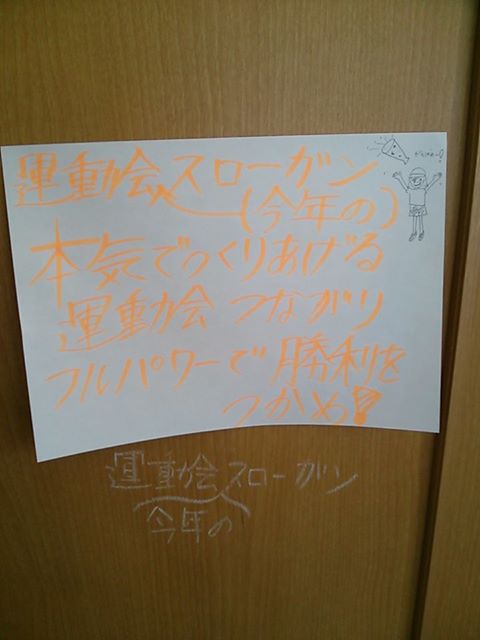 運動会スローガン
(今年の)
本気でつくりあげる
運動会 つながり
フルパワーで勝利を
つかめ!
運動会スローガン
今年の